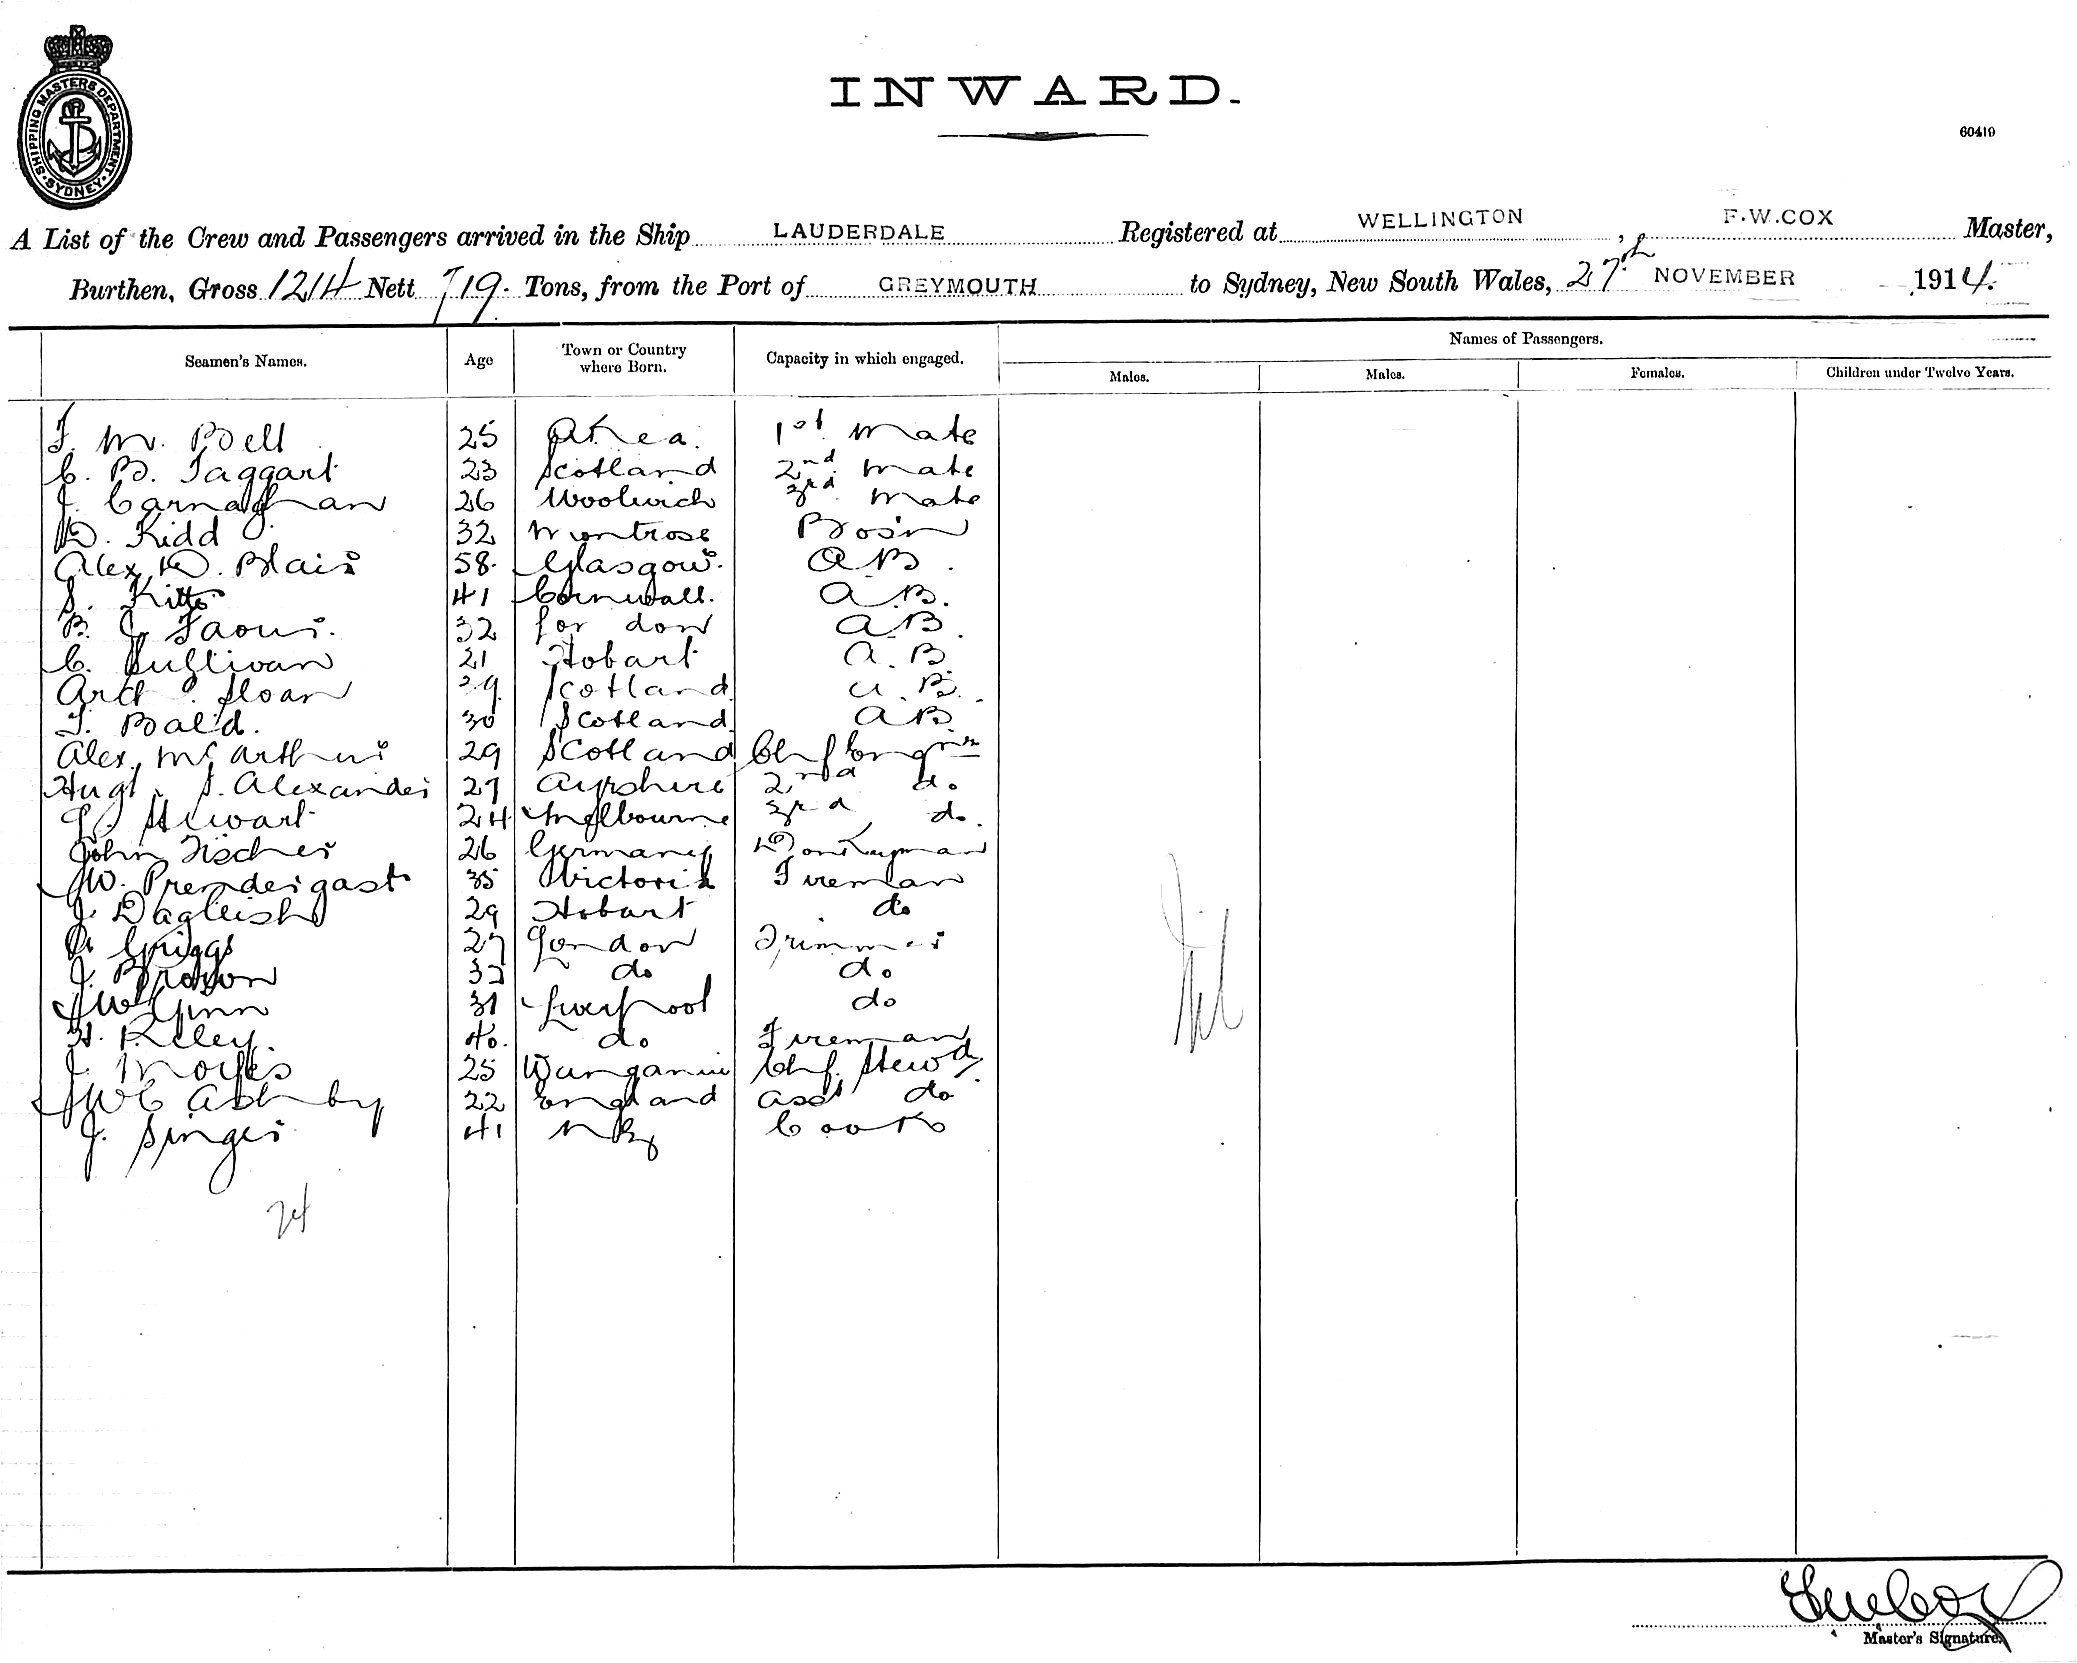 SHIPPING MASTERS DEPARTMENT. SYDNEY.
INWARD.
60419
A List of the Crew and Passengers arrived in the Ship LAUDERDALE Registered at WELLINGTON, F.W.COX Master,
Burthen, Gross 1214 Nett 719. Tons, from the Port of GREYMOUTH to Sydney, New South Wales, 27th NOVEMBER 1914.
Seamen's Names. Age Town or Country where Born. Capacity in which engaged. Names of Passengers.
Males. Males. Females. Children under Twelve Years.
F. M. Bell 25 1st Mate
C. B. Taggart 23 Scotland 2nd Mate
J. Carnaghan 26 Woolwich 3rd Mate
D. Kidd 32 Montrose Bosn
Alex D. Blair 58. Glasgow. A B.
S. Kitto 41 Cornwall. A.B.
B. J. 32 London A B.
C. Sullivan 21 Hobart A.B.
Arch. Sloan 29 Scotland A.B.
T. Bald. 30 Scotland A B
Alex. McArthur 29 Scotland Chf Engnr
Hugh S. Alexander 27 Ayrshire 2nd do
G. Stewart 24 Melbourne 3rd do.
John Fischer 26 Germany Donkeyman
J W. Prendergast 35 Victoria Fireman
J. Dagleish 29 Hobart do
Griggs 27 London Trimmer
J. Brown 32 do do
J W Gynn 31 Liverpool do
H. Riley. 40. do Fireman
J. Morris 25 Wanganui Chf. Stewd
J W C Ashby 22 England Asst do
J. Singer 41 Cook
24
Nil
F W Cox
Master's Signature.